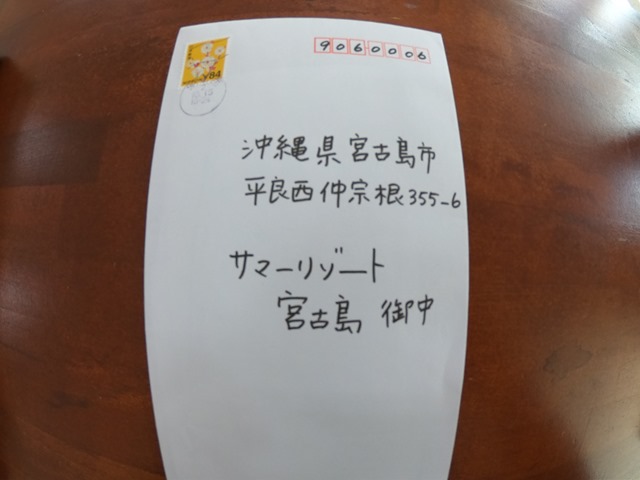 9060006
¥84
沖縄県宮古島市
平良西仲宗根355-6
サマーリゾート
宮古島 御中